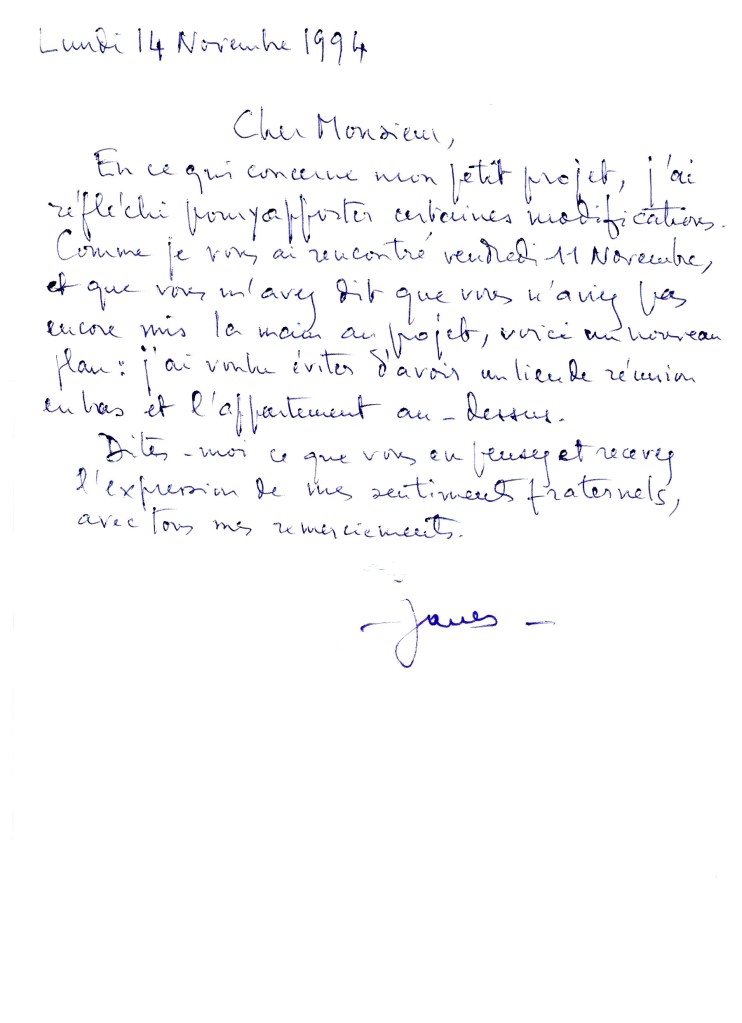 Lundi 14 Novembre 1994
Cher Monsieur,
En ce qui concerne mon petit projet, j'ai
réfléchi pour y apporter certaines modifications.
Comme je vous ai rencontré vendredi 11 Novembre,
et que vous m'avez dit que vous n'aviez pas
encore mis la main au projet, voici un nouveau
plan : j'ai voulu éviter d'avoir un lieu de réunion
en bas et l'appartement au-dessus.
Dites-moi ce que vous en pensez et recevez
l'expression de mes sentiments fraternels,
avec tous mes remerciements.